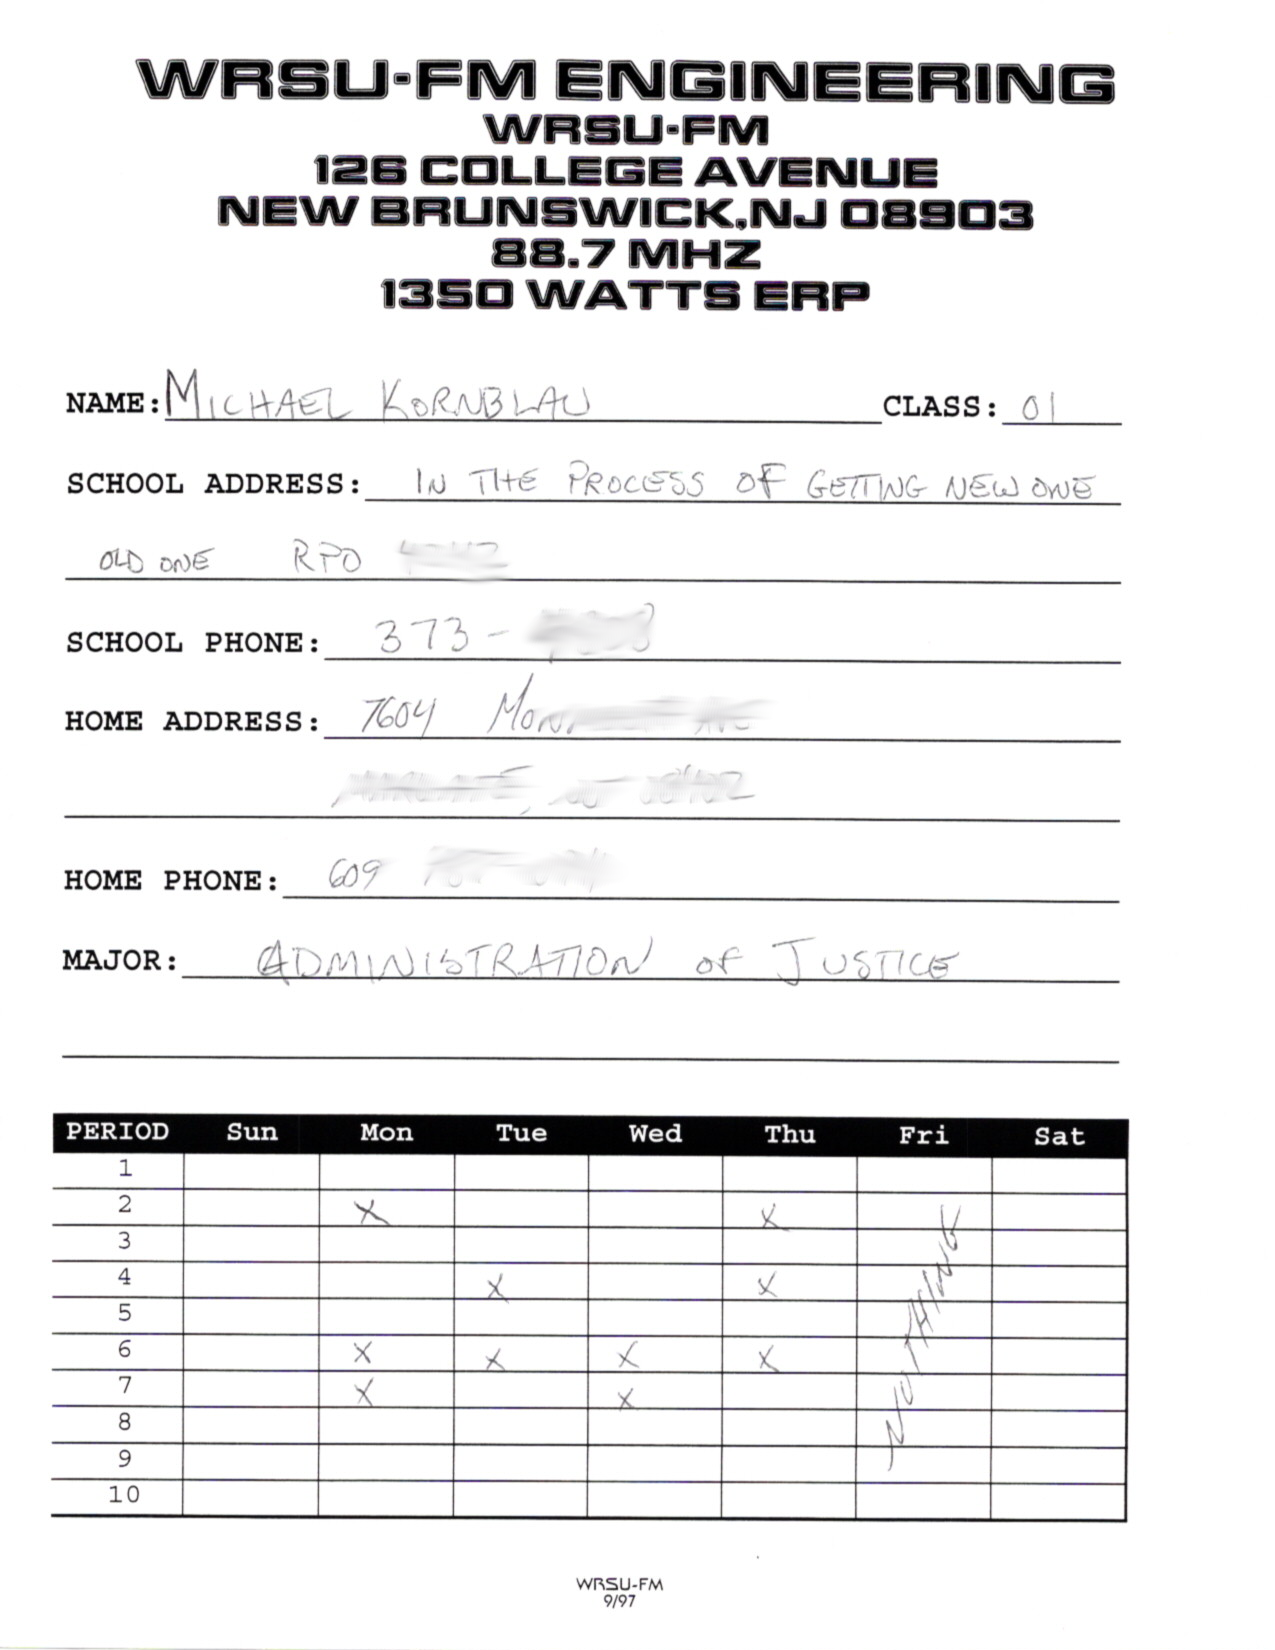 WRSU-FM ENGINEERING
WRSU-FM
126 COLLEGE AVENUE
NEW BRUNSWICK,NJ 08903
88.7 MHZ
1350 WATTS ERP
NAME: MICHAEL KORNBLAU CLASS: 01
SCHOOL ADDRESS: IN THE PROCESS OF GETTING NEW ONE
OLD ONE RPO
SCHOOL PHONE: 373-
HOME ADDRESS: 7604
HOME PHONE: 609
MAJOR: ADMINISTRATION OF JUSTICE
PERIOD Sun Mon Tue Wed Thu Fri Sat
1
2 X X
3
4 X X
5
6 X X X X
7 X X
8
9
10
NOTHING
WRSU-FM
9/97